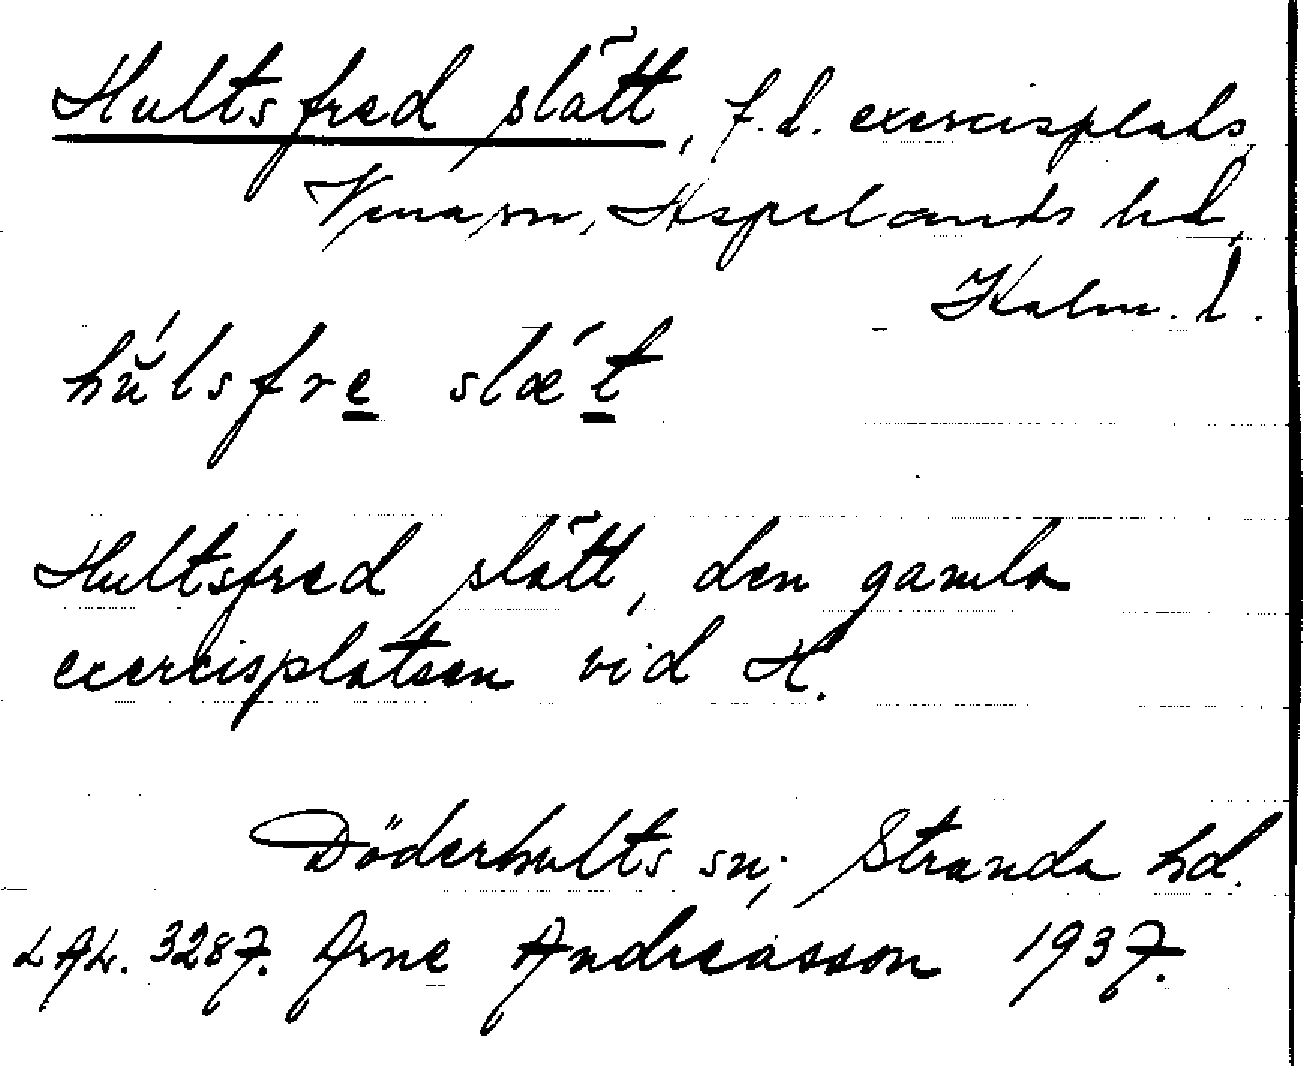 Hultsfred slätt, f.d. exercisplats,
Vena sn, Aspelands hd,
Kalm. l.
hŭ́lsfre slæ´t
Hultsfred slätt, den gamla
exercisplatsen vid H.
Döderhults sn; Stranda hd.
LAL. 3287. Arne Andreasson 1937.